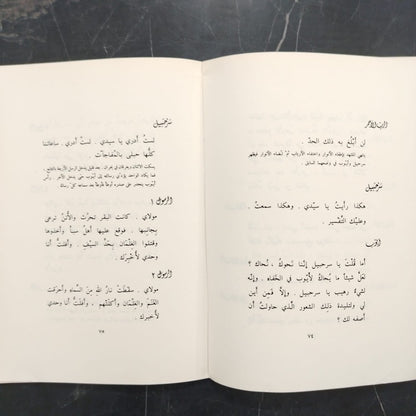 الرب الآخر
لن أبلغ به ذلك الحد .
سرحبيل
هكذا رأيت يا سيدي . وهكذا سمعت .
وعليك التفسير .
أيوب
أما قلت يا سرحبيل إننا نحوك ، نحاك ؟
لعل شيئاً ما يحاك لأيوب في الخفاء . وإنه
لشيء رهيب يا سرحبيل . وإلا فمن أين
لي ولتليدة ذلك الشعور الذي حاولت أن
أصفه لك ؟
٧٤
سرحبيل
لست أدري يا سيدي . لست أدري . ساعاتنا
كلها حبلى بالمفاجآت .
الرسول ١
مولاي . كانت البقر تحرث والأتن ترعى
بجانبها . فوقع عليها أهل سبأ وأخذوها
وقتلوا الغلمان بحد السيف . وأفلت أنا
وحدي لأخبرك .
الرسول ٢
مولاي . سقطت نار الله من السماء وأحرقت
الغنم والغلمان وأكلتهم . وأفلت أنا وحدي
لأخبرك .
٧٥